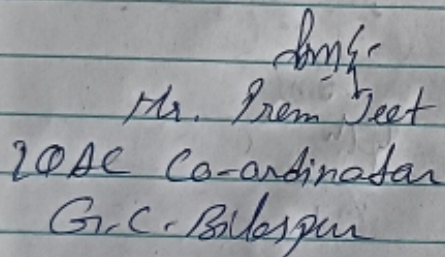 Mr. Prem Jeet
IQAC Co-ordinator
G.C. Bilaspur